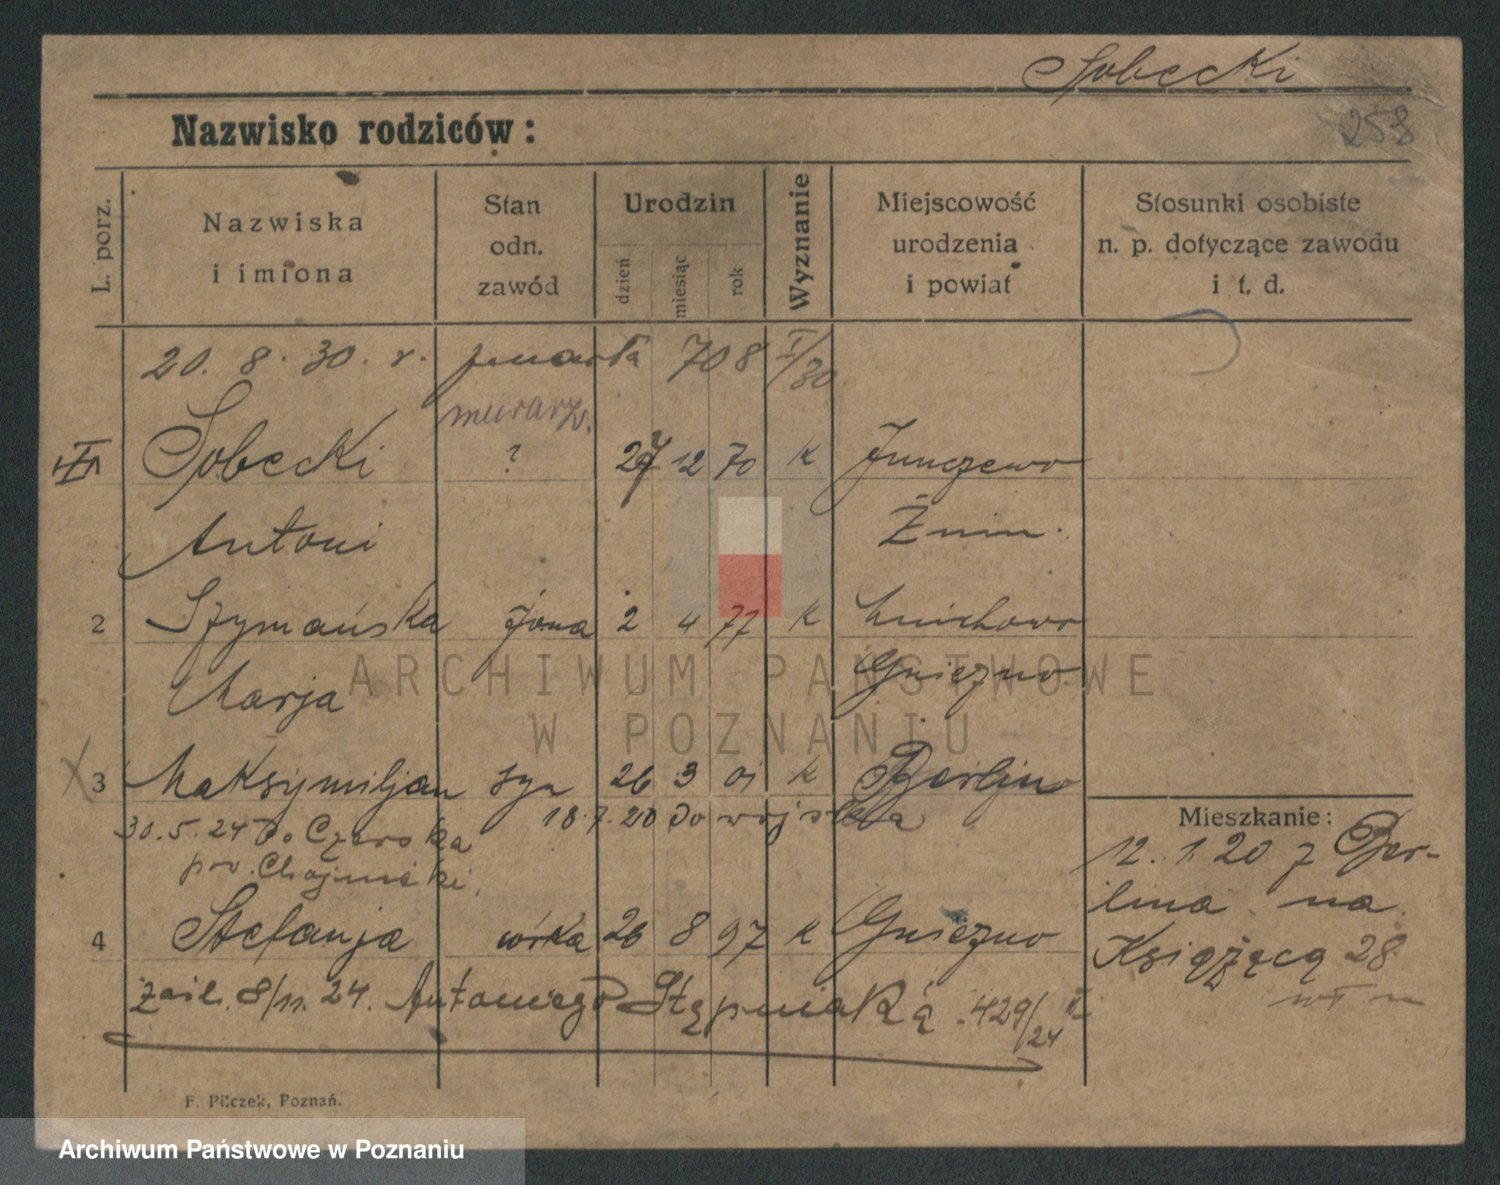 Sobecki
Nazwisko rodziców:
258
L. porz.
Nazwiska
i imiona
Stan
odn.
zawód
Urodzin
dzień
miesiąc
rok
Wyznanie
Miejscowość
urodzenia
i powiat
Stosunki osobiste
n. p. dotyczące zawodu
i t. d.
20. 8. 30. r. zmarła 708 I/30
murarz.
Sobecki ? 27 12 70 k Junczewo
Antoni Żnin.
2 Szymańska żona 2 4 77 k
Marja Gniezno
3 Maksymiljan syn 26 3 01 k Berlin
30.5.24 do Czerska 18.7.20 do wojska
pow. Chojnicki.
4 Stefanja córka 26 8 97 k Gniezno
zaśl. 8/11. 24. Antoniego Stępniaka. 429/24 II
Mieszkanie:
12. 1. 20 z Ber-
lina na
Książęcą 28
F. Pilczek, Poznań.
ARCHIWUM PAŃSTWOWE
W POZNANIU
Archiwum Państwowe w Poznaniu